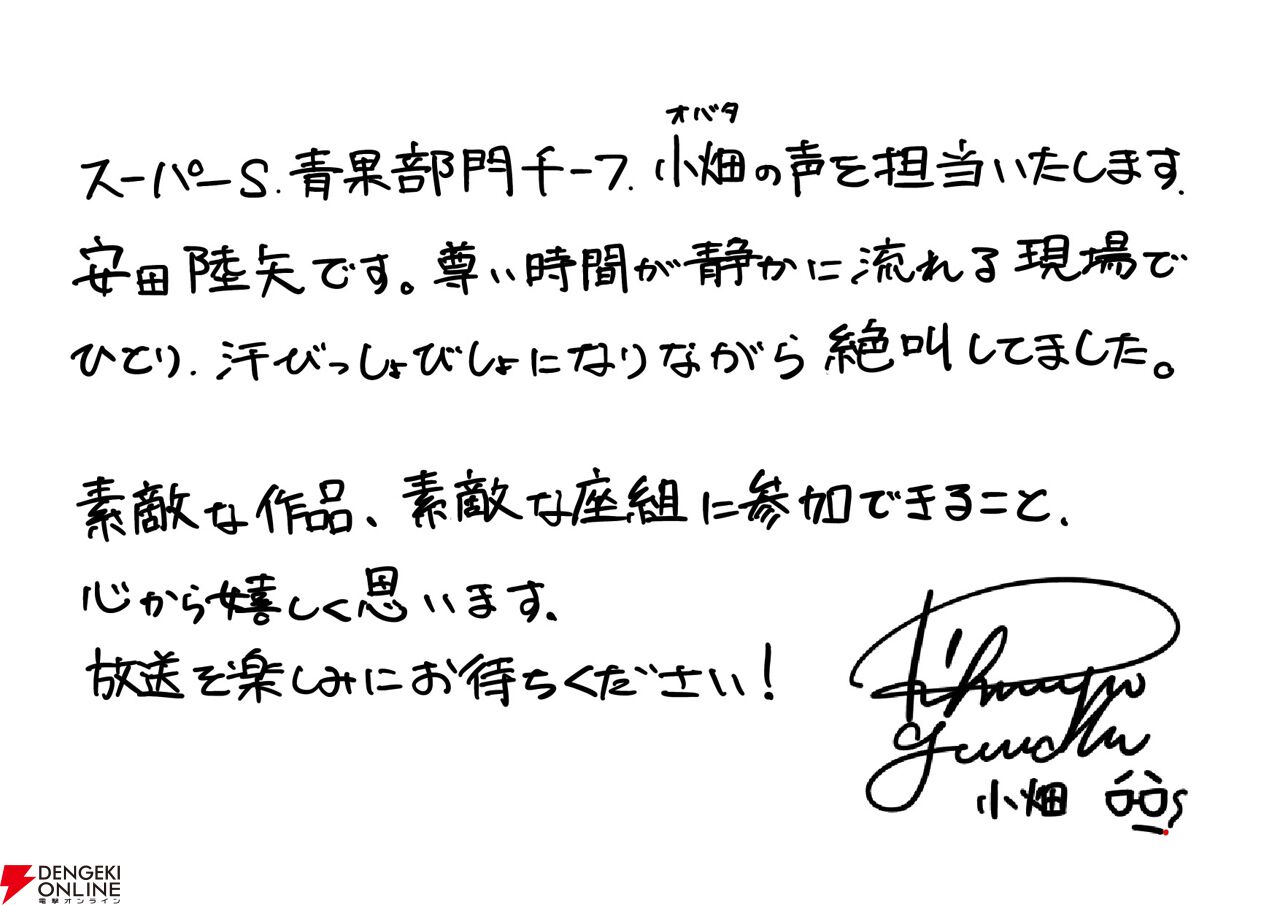 オバタ
スーパーS.青果部門チーフ.小畑の声を担当いたします.
安田陸矢です。尊い時間が静かに流れる現場で
ひとり.汗びっしょびしょになりながら絶叫してました。
素敵な作品、素敵な座組に参加できること、
心から嬉しく思います.
放送を楽しみにお待ちください!
小畑
DENGEKI
ONLINE
電撃オンライン